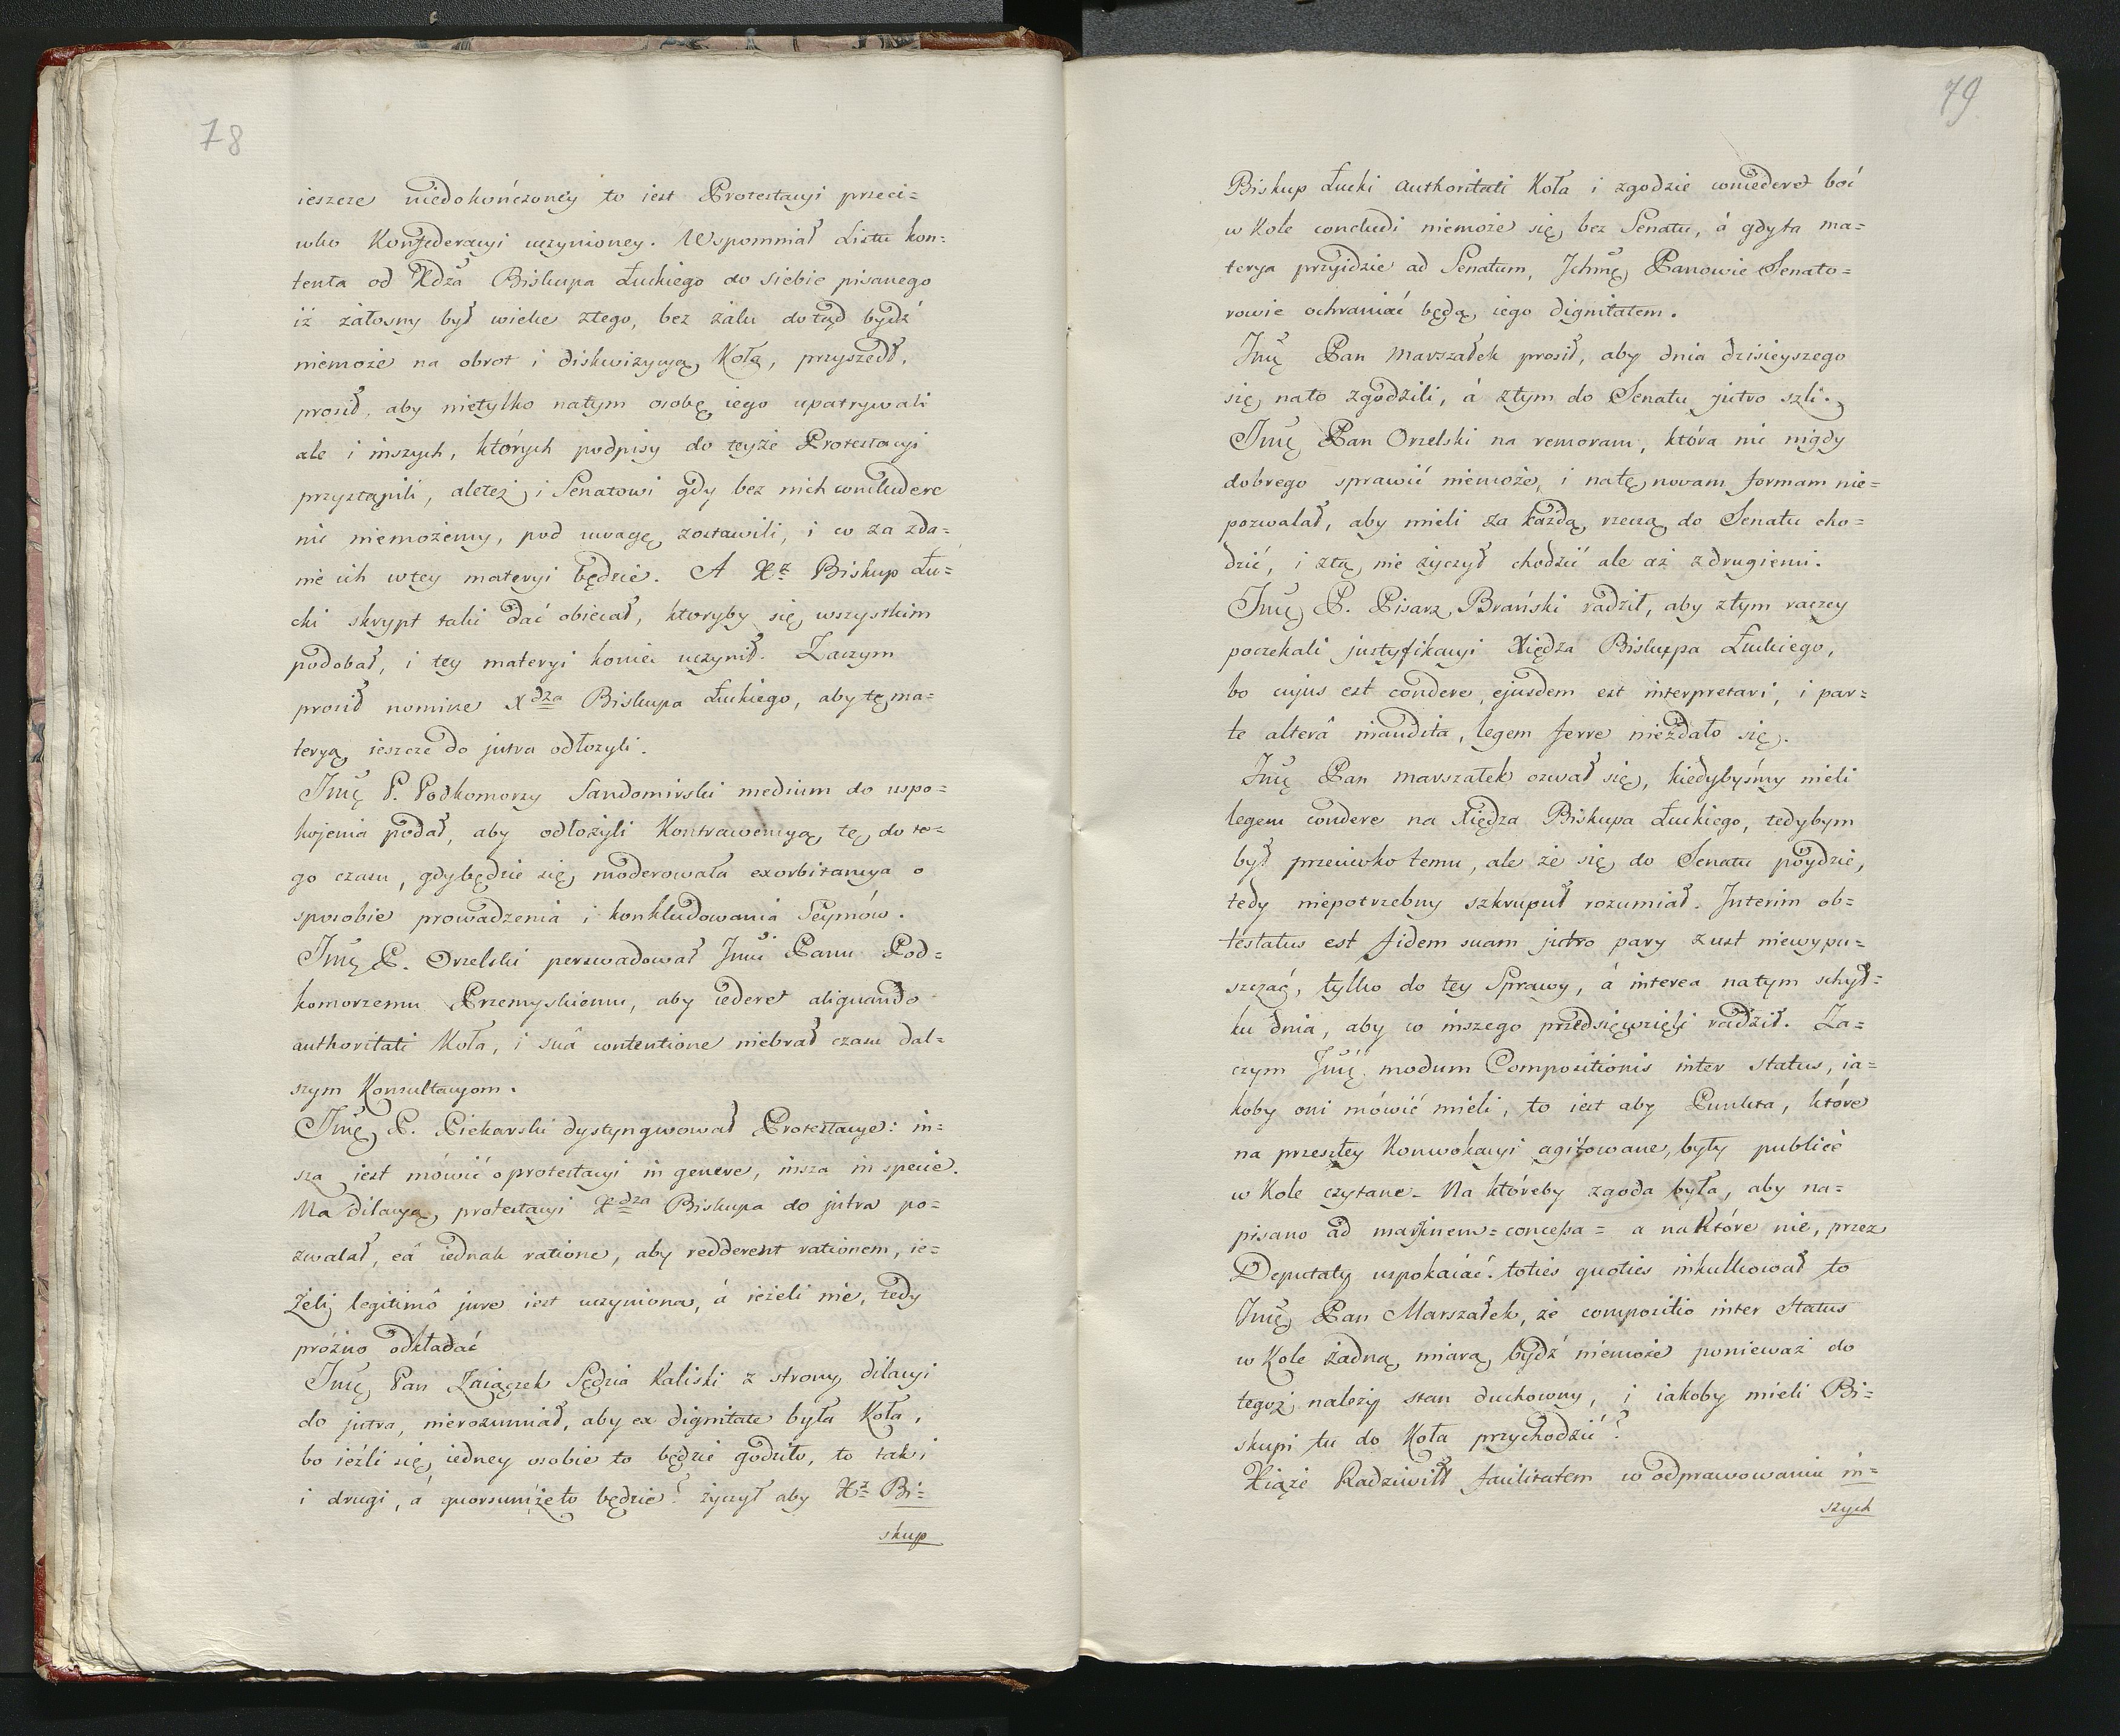 78
ieszcze niedokończoney to iest Protestacyi przeci=
wko Konfederacyi uczynioney. Wspomniał Listu kon=
tenta od Xdza Biskupa Łuckiego do siebie pisanego
iż żałosny był wielce ztego, bez żalu dotąd bydź
niemoże na obrot i diskwizycyą Koła, przyszedł,
prosił, aby nietylko natym osobę iego upatrywali
ale i inszych, których podpisy do teyże Protestacyi
przystąpili, aleteż i Senatowi gdy bez nich concludere
nic niemożemy, pod uwagę zostawili, i co za zda=
nie ich wtey materyi będzie. A Xz Biskup Łu=
cki skrypt taki dać obiecał, ktoryby się wszystkim
podobał, i tey materyi koniec uczynił. Zaczym
prosił nomine Xdza Biskupa Łuckiego, aby tę ma=
teryą ieszcze do jutra odłożyli.
Jmę P. Podkomorzy Sandomirski medium do uspo=
kojenia podał, aby odłożyli Kontrawencyą tę do te=
go czasu, gdybędzie się moderowała exorbitancya o
sposobie prowadzenia i konkludowania Seymów.
Jmę P. Orzelski perswadował Jmu Panu Pod=
komorzemu Przemyskiemu, aby cederet aliquando
authoritati Koła, i suâ contentione niebrał czasu dal=
szym Konsultacyom.
Jmę P. Piekarski dystyngwował Protestacye: in=
sza iest mówić o protestacyi in genere, insza in specie.
Na dilacyą protestacyi Xdza Biskupa do jutra po=
zwalał, eâ iednak ratione, aby redderent rationem, ie=
żeli legitimô jure iest uczyniona, á ieżeli nie, tedy
próżno odkładać
Jmę Pan Zaiączek Sędzia Kaliski z strony dilacyi
do jutra, nierozumiał, aby ex dignitate była Koła,
bo ieźli się iedney osobie to będzie godziło, to tak i
i drugi, á quorsumżeto będzie? życzył aby Xz Bi=
skup
79
Biskup Łucki authoritati Koła i zgodzie concederet boć
w Kole concludi niemoże się bez Senatu, á gdyta ma=
terya przyidzie ad Senatum, Ichmę Panowie Senato=
rowie ochraniać będą iego dignitatem.
Jmę Pan Marszałek prosił, aby dnia dzisieyszego
się nato zgodzili, á ztym do Senatu jutro szli.
Jmę Pan Orzelski na remoram, która nic nigdy
dobrego sprawić niemoże, i natę novam formam nie=
pozwalał, aby mieli za każdą rzeczą do Senatu cho=
dzić, i ztą nie życzył chodzić ale aż zdrugiemi.
Jmę P. Pisarz Brański radził, aby ztym raczey
poczekali justyfikacyi Xiędza Biskupa Łuckiego,
bo cujus est condere, ejusdem est interpretari, i par=
te alterâ inaudita, legem ferre niezdało się.
Jmę Pan Marszałek ozwał się, kiedybyśmy mieli
legem condere na Xiędza Biskupa Łuckiego, tedybym
był przeciwko temu, ale że się do Senatu póydzie,
tedy niepotrzebny szkrupuł rozumiał. Interim ob=
testatus est fidem suam jutro pary z ust niewypu=
szczać, tylko do tey Sprawy, á interea natym schył=
ku dnia, aby co inszego przedsięwzięli radził. Za=
czym Jmę modum Compositionis inter status, ia=
koby oni mówić mieli, to iest aby Punkta, które
na przeszłey Konwokacyi agitowane, były publicè
w Kole czytane. Na któreby zgoda była, aby na=
pisano ad marginem = concessa = a na które nie, przez
Deputaty uspokaiać. toties quoties inkulkował to
Jmę Pan Marszałek, że compositio inter Status
w Kole żadną miarą bydź niemoże ponieważ do
tegoż należy stan duchowny, i iakoby mieli Bi=
skupi tu do Koła przychodzić?
Xiąże Radziwiłł facilitatem w odprawowaniu in=
szych